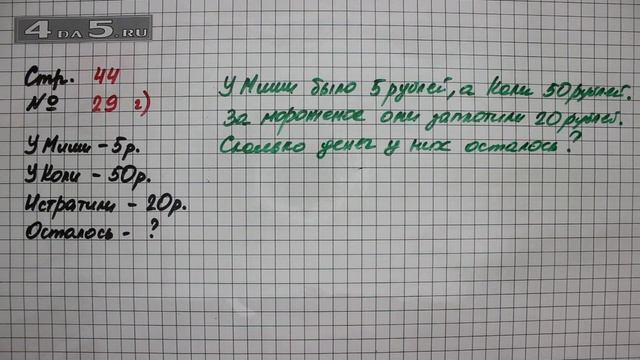 4 DA 5.RU
Стр. 44
№ 29 г)
У Миши было 5 рублей, а Коли 50 рублей.
За мороженое они заплатили 20 рублей.
Сколько денег у них осталось?
У Миши - 5р.
У Коли - 50р.
Истратили - 20р.
Осталось - ?